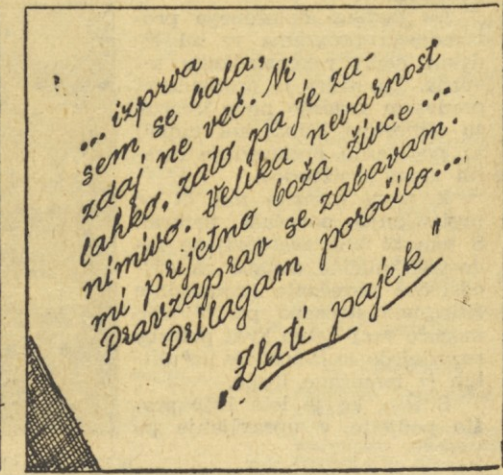 ... izprva
sem se bala,
zdaj ne več. Ni
lahko, zato pa je za-
nimivo. Velika nevarnost
mi prijetno boža živce...
Pravzaprav se zabavam.
Prilagam poročilo...
„Zlati pajek"